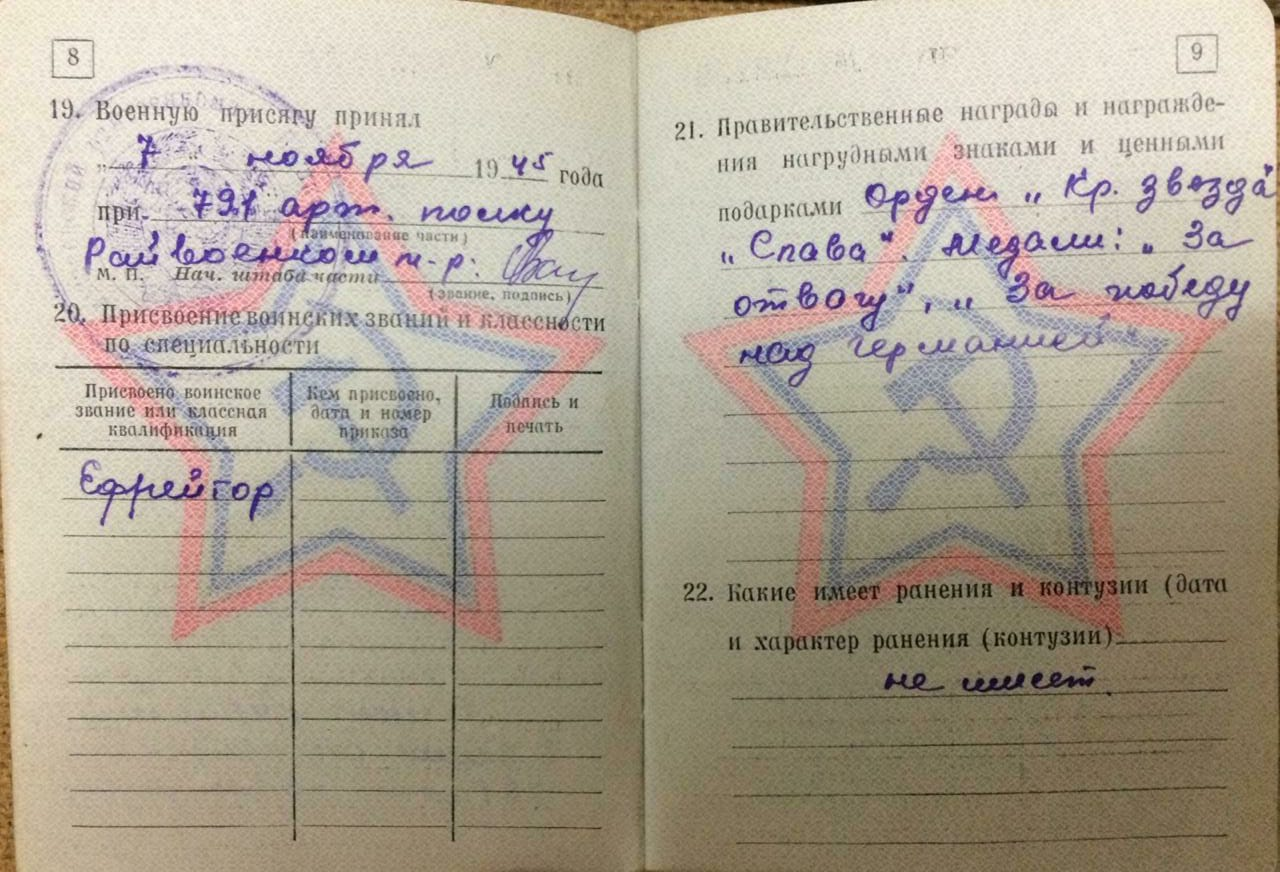 8
19. Военную присягу принял
„ 7 " ноября 1945 года
при 721 арт. полку
(наименование части)
Райвоенком м-р:
М. П. Нач. штаба части
(звание, подпись)
20. Присвоение воинских званий и классности
по специальности
Присвоено воинское
звание или классная
квалификация
Кем присвоено,
дата и номер
приказа
Подпись и
печать
Ефрейтор
9
21. Правительственные награды и награжде-
ния нагрудными знаками и ценными
подарками Орден „Кр. звезда"
„Слава". Медали: „За
отвагу", „За победу
над германией"
22. Какие имеет ранения и контузии (дата
и характер ранения (контузии)
не имеет